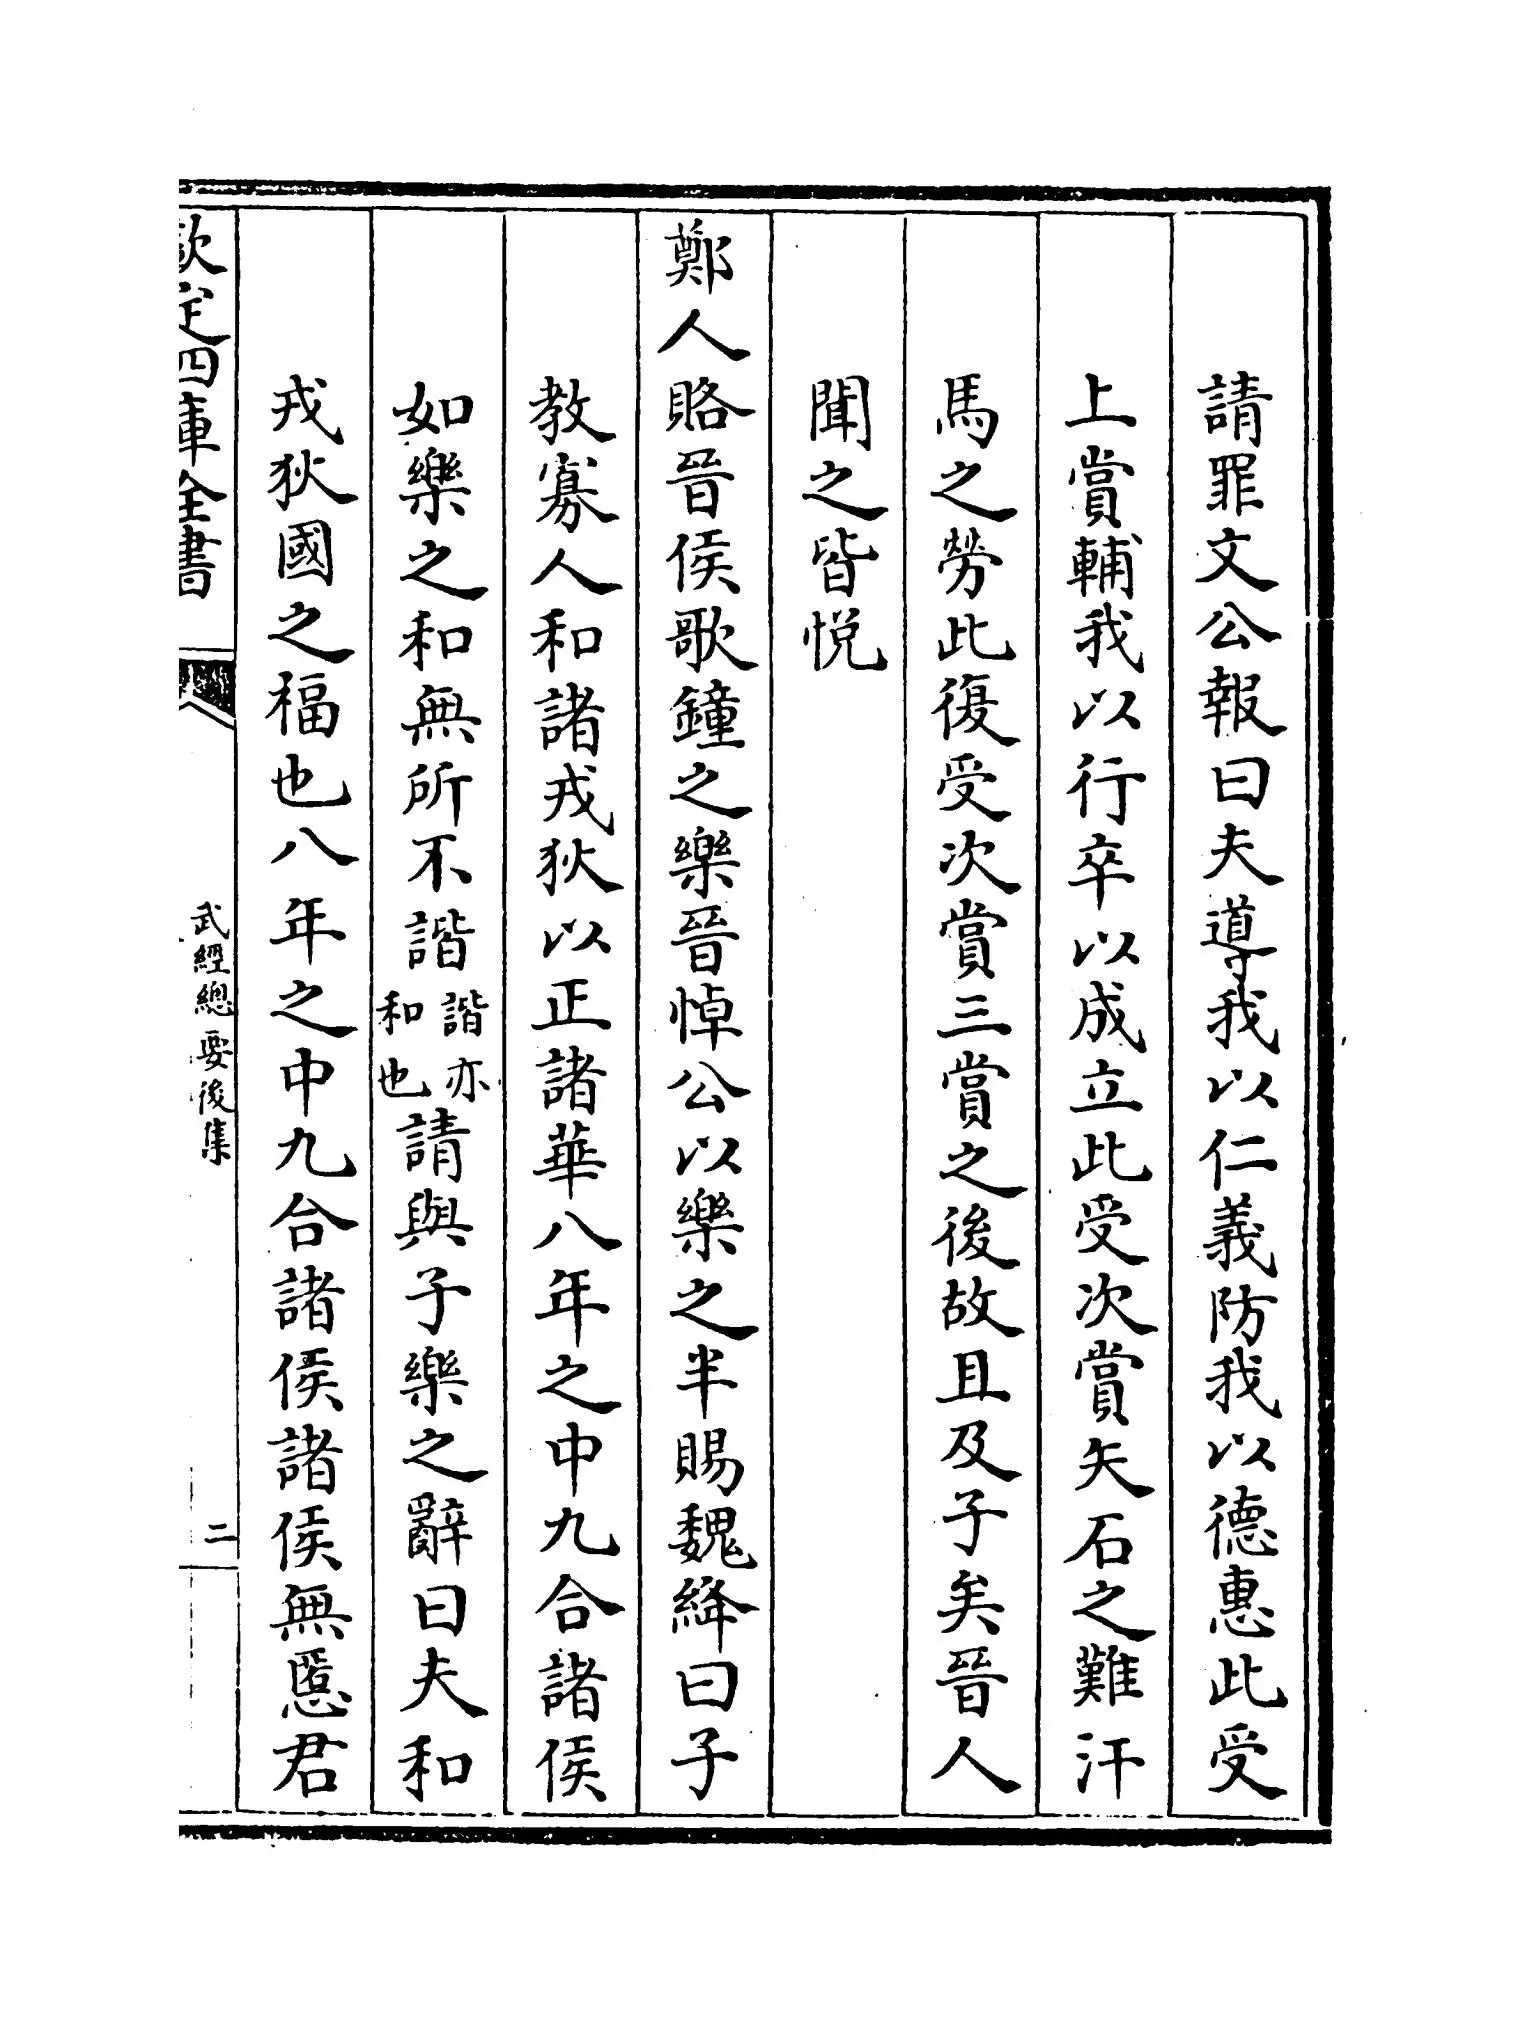 請罪文公報曰夫導我以仁義防我以德惠此受
上賞輔我以行卒以成立此受次賞矢石之難汗
馬之勞此復受次賞三賞之後故且及子矣晉人
聞之皆悅
鄭人賂晉侯歌鐘之樂晉悼公以樂之半賜魏絳曰子
教寡人和諸戎狄以正諸華八年之中九合諸侯
如樂之和無所不諧諧亦和也請與子樂之辭曰夫和
戎狄國之福也八年之中九合諸侯諸侯無慝君
欽定四庫全書
武經總要後集
二